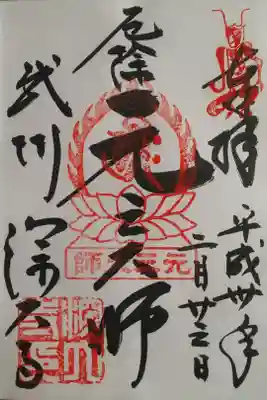 奉拝
平成卅年
二月廿三日
厄除
元三大師
元三大師
武州
深大寺